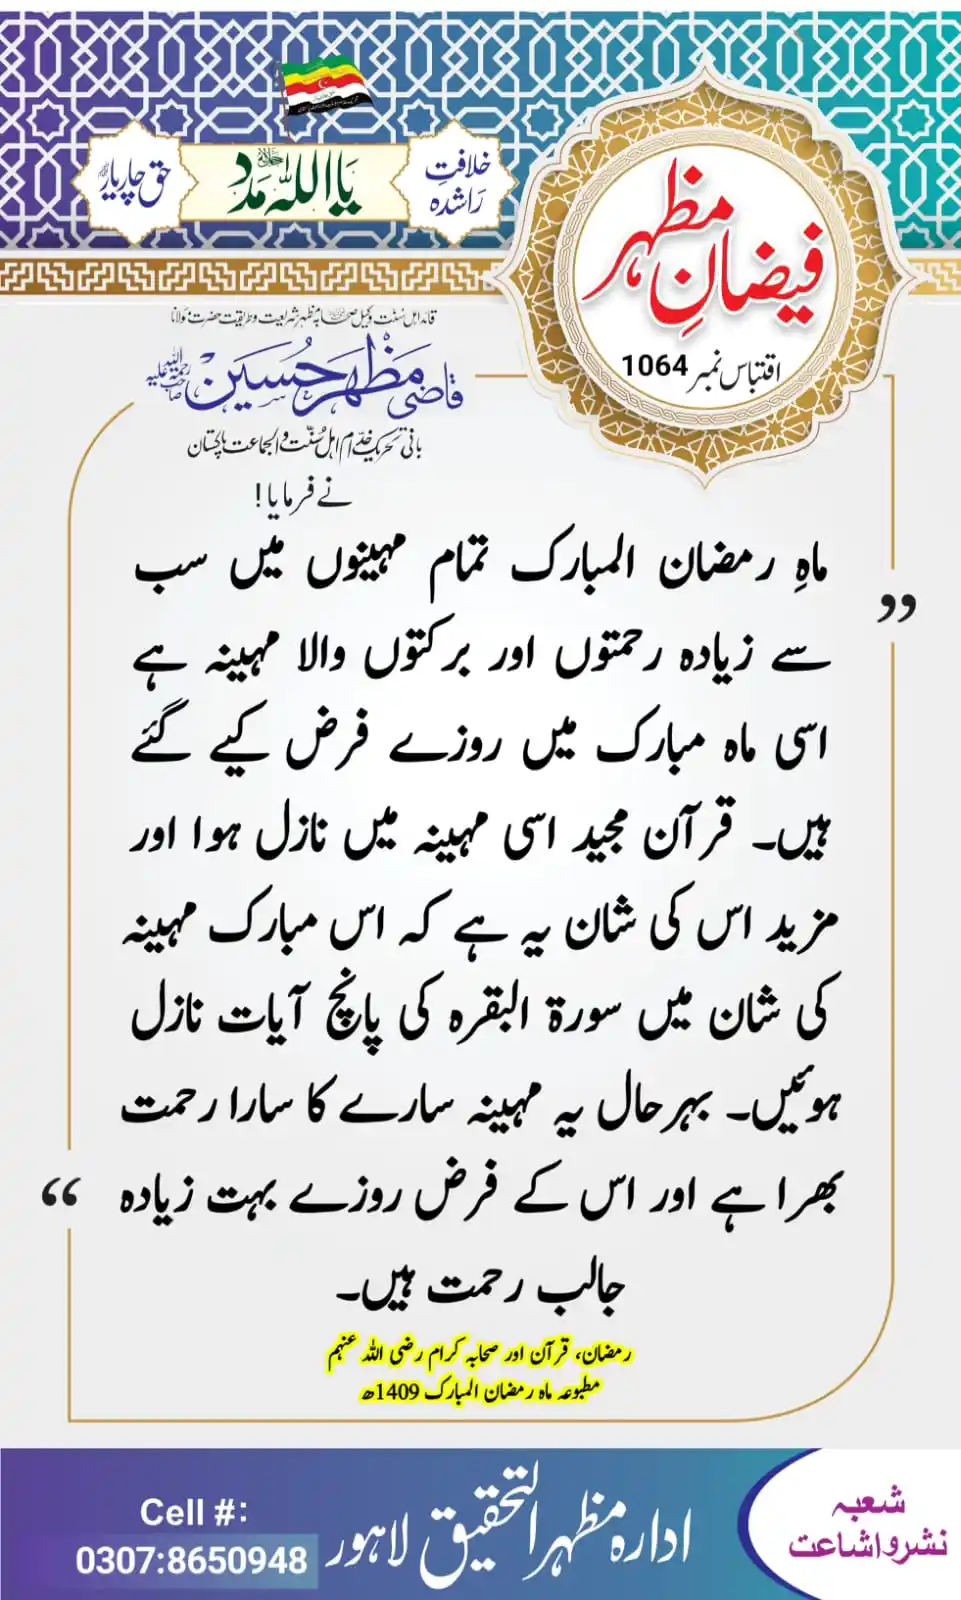 خلافتِ
رَاشدہ
یا اللہ جل جلالہ مَدد
حق چار یارؓ
فیضانِ مظہر
اقتباس نمبر 1064
قائد اہل سُنت وکیل صحابہؓ مظہر شریعت و طریقت حضرت مَولانا
قاضی مَظہر حُسین صاحب رحمۃ اللہ علیہ
بانی تحریک خدّام اہل سُنّت والجماعت پاکستان
نے فرمایا!
ماہِ رمضان المبارک تمام مہینوں میں سب
سے زیادہ رحمتوں اور برکتوں والا مہینہ ہے
اسی ماہ مبارک میں روزے فرض کیے گئے
ہیں۔ قرآن مجید اسی مہینہ میں نازل ہوا اور
مزید اس کی شان یہ ہے کہ اس مبارک مہینہ
کی شان میں سورۃ البقرہ کی پانچ آیات نازل
ہوئیں۔ بہرحال یہ مہینہ سارے کا سارا رحمت
بھرا ہے اور اس کے فرض روزے بہت زیادہ
جالب رحمت ہیں۔
رمضان، قرآن اور صحابہ کرام رضی اللہ عنہم
مطبوعہ ماہ رمضان المبارک 1409ھ
شعبہ
نشر و اشاعت
ادارہ مظہر التحقیق لاہور
Cell #:
0307:8650948